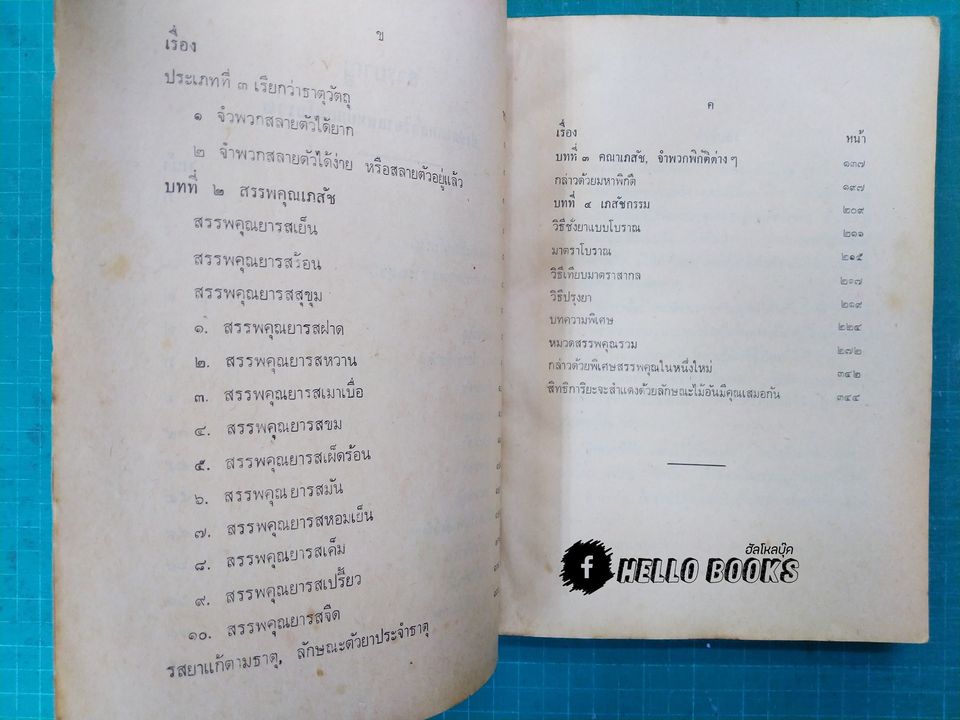 ข
เรื่อง
ประเภทที่ ๓ เรียกว่าธาตุวัตถุ
๑ จำพวกสลายตัวได้ยาก
๒ จำพวกสลายตัวได้ง่าย หรือสลายตัวอยู่แล้ว
บทที่ ๒ สรรพคุณเภสัช
สรรพคุณยารสเย็น
สรรพคุณยารสร้อน
สรรพคุณยารสสุขุม
๑. สรรพคุณยารสฝาด
๒. สรรพคุณยารสหวาน
๓. สรรพคุณยารสเมาเบื่อ
๔. สรรพคุณยารสขม
๕. สรรพคุณยารสเผ็ดร้อน
๖. สรรพคุณยารสมัน
๗. สรรพคุณยารสหอมเย็น
๘. สรรพคุณยารสเค็ม
๙. สรรพคุณยารสเปรี้ยว
๑๐. สรรพคุณยารสจืด
รสยาแก้ตามธาตุ, ลักษณะตัวยาประจำธาตุ
ค
เรื่อง หน้า
บทที่ ๓ คณาเภสัช, จำพวกพิกัติต่าง ๆ ๑๓๗
กล่าวด้วยมหาพิกัติ ๑๙๗
บทที่ ๔ เภสัชกรรม ๒๐๙
วิธีชั่งยาแบบโบราณ
มาตราโบราณ ๒๑๕
วิธีเทียบมาตราสากล ๒๑๗
วิธีปรุงยา ๒๑๙
บทความพิเศษ ๒๒๔
หมวดสรรพคุณรวม ๒๗๒
กล่าวด้วยพิเศษสรรพคุณในหนึ่งใหม่ ๓๔๒
สิทธิการิยะจะสำแดงด้วยลักษณะไม้อันมีคุณเสมอกัน ๓๔๔
ฮัลโหลบุ๊ค
f HELLO BOOKS